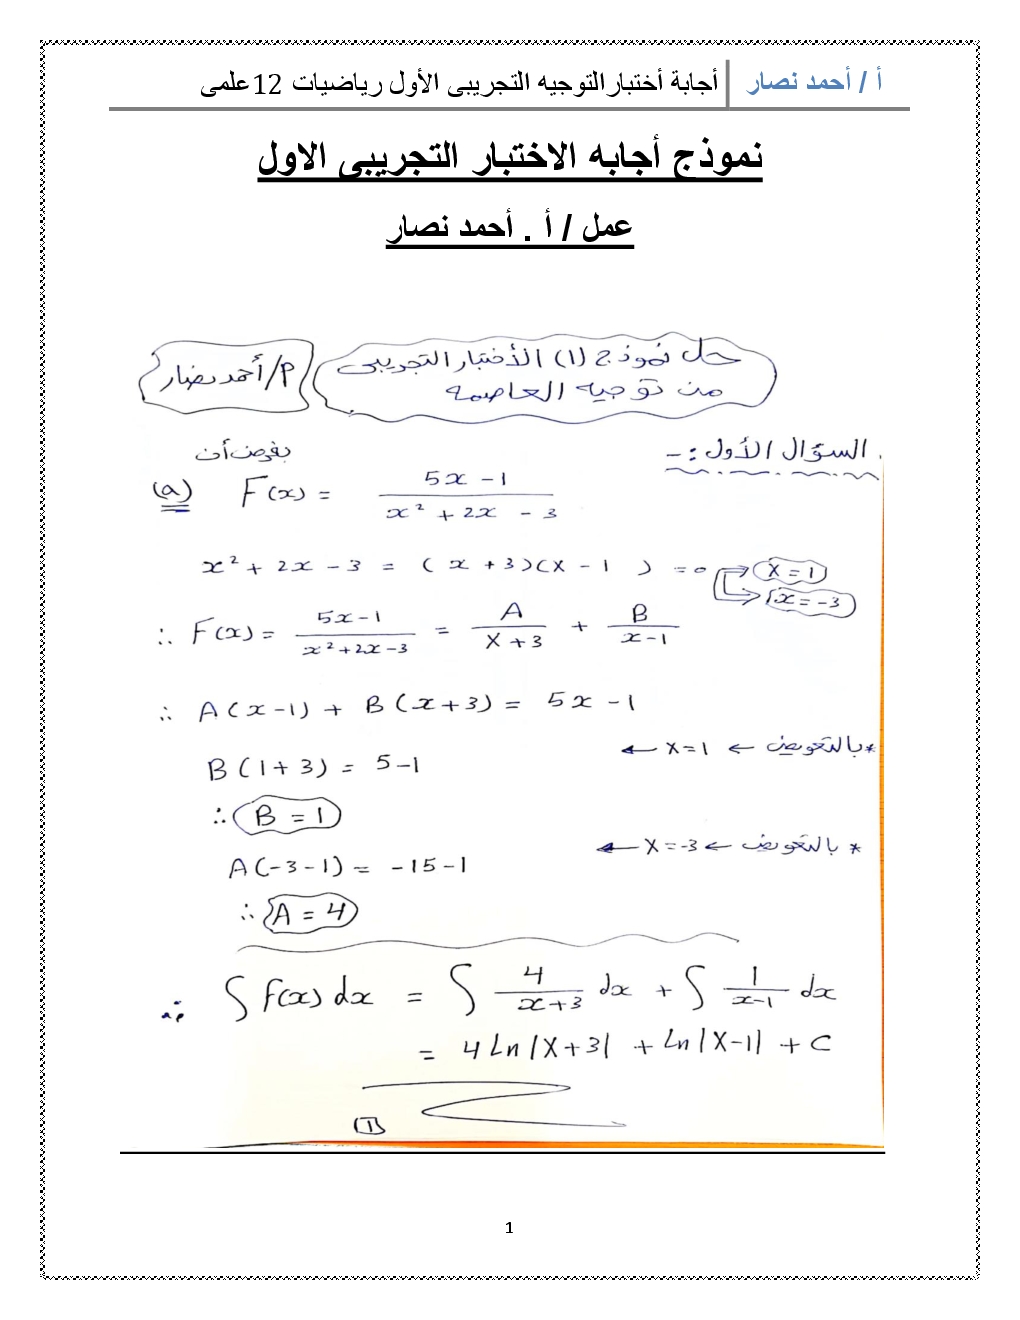 أ / أحمد نصار أجابة أختبارالتوجيه التجريبى الأول رياضيات 12علمى
نموذج أجابه الاختبار التجريبى الاول
عمل / أ . أحمد نصار
حل نموذج (1) الأختبار التجريبى
من توجيه العاصمه
أ/أحمد نصار
السؤال الأول :-
بفرض أن
(a) F(x) = (5x - 1)/(x² + 2x - 3)
x² + 2x - 3 = (x + 3)(x - 1) = 0 x = 1
x = -3
∴ F(x) = (5x - 1)/(x² + 2x - 3) = A/(x + 3) + B/(x - 1)
∴ A(x - 1) + B(x + 3) = 5x - 1
* بالتعويض ← x = 1 ←
B(1 + 3) = 5 - 1
∴ B = 1
* بالتعويض ← x = -3 ←
A(-3 - 1) = -15 - 1
∴ A = 4
∴ ∫ F(x) dx = ∫ 4/(x + 3) dx + ∫ 1/(x - 1) dx
= 4 Ln |x + 3| + Ln |x - 1| + C
(1)
1